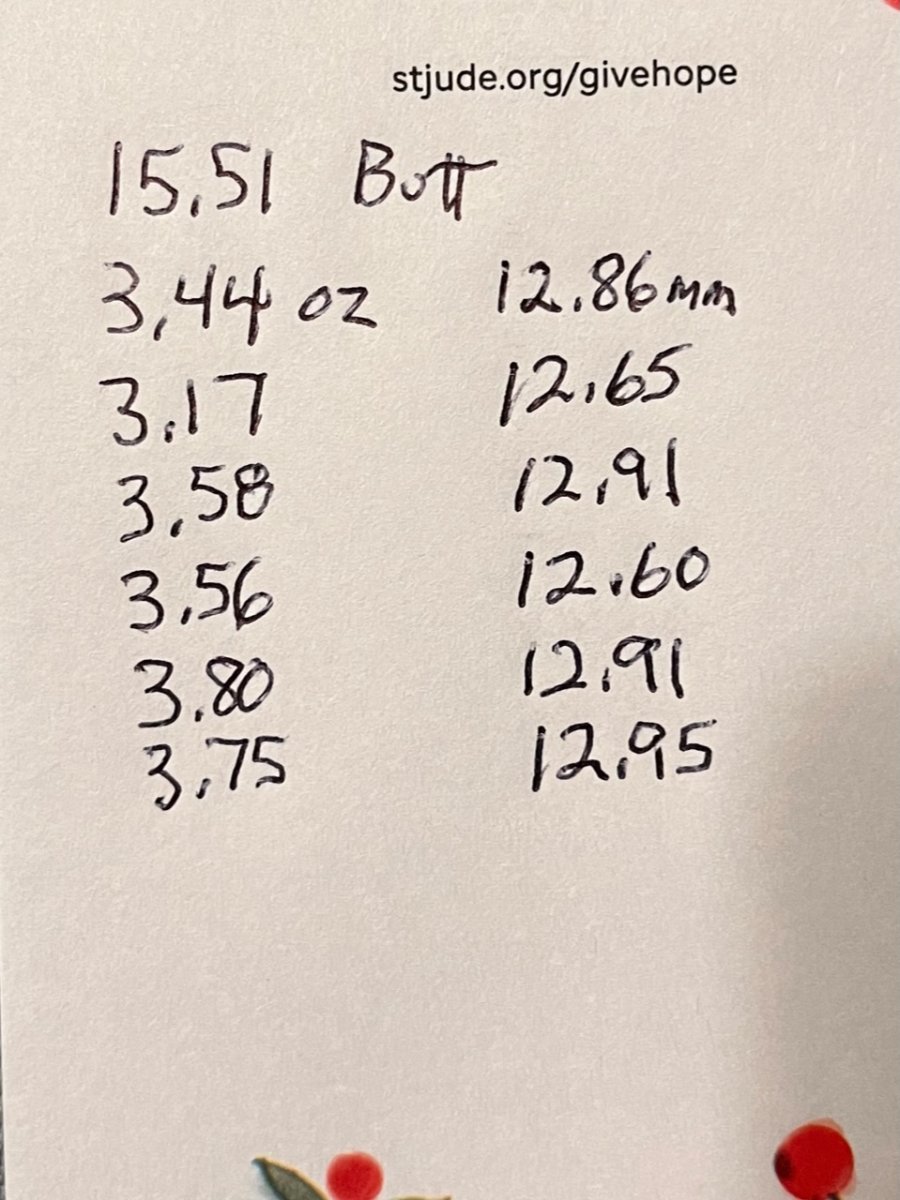 stjude.org/givehope
15.51 Butt
3.44 oz 12.86mm
3.17 12.65
3.58 12.91
3.56 12.60
3.80 12.91
3.75 12.95